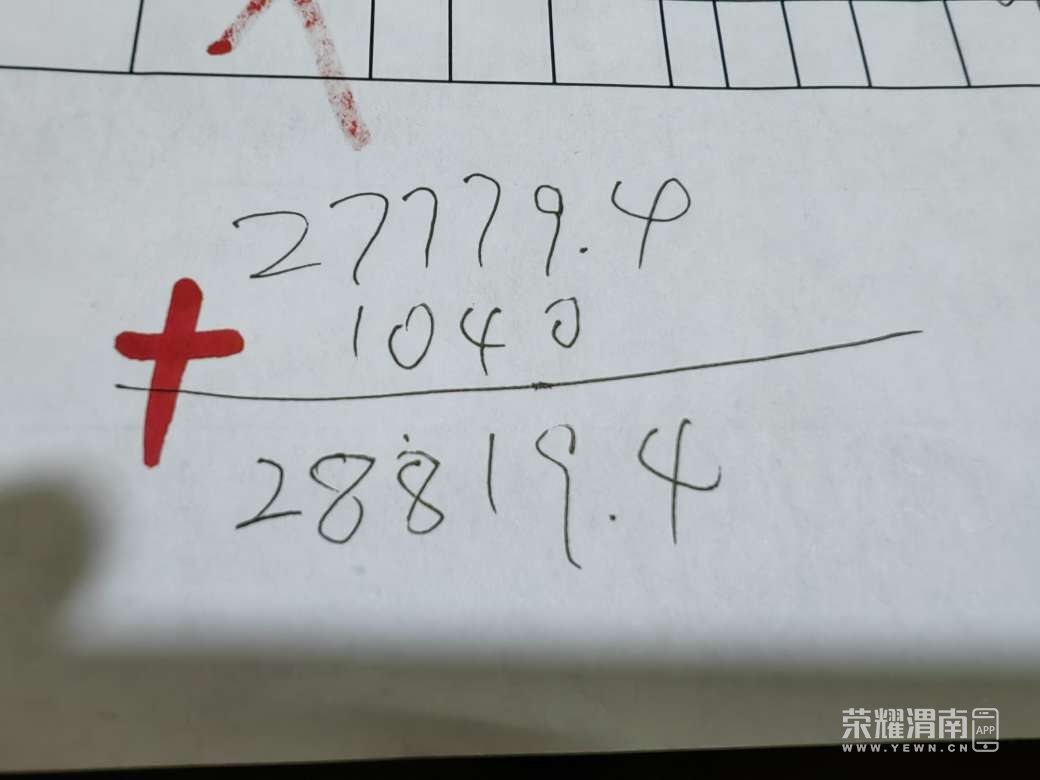 27779.4
+ 1040
28819.4
荣耀渭南 APP
WWW.YEWN.CN